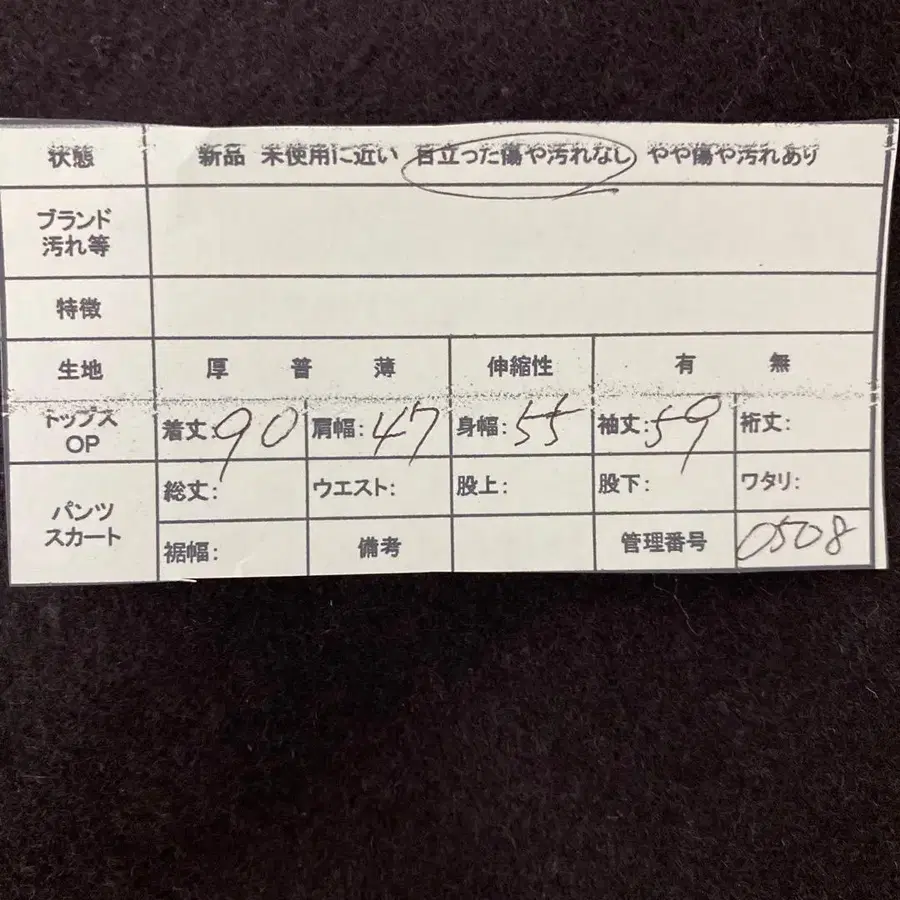 状態 新品 未使用に近い 目立った傷や汚れなし やや傷や汚れあり
ブランド
汚れ等
特徴
生地 厚 普 薄 伸縮性 有 無
トップス
OP
着丈:90 肩幅:47 身幅:55 袖丈:59 裄丈:
パンツ
スカート
総丈: ウエスト: 股上: 股下: ワタリ:
裾幅: 備考 管理番号 0508